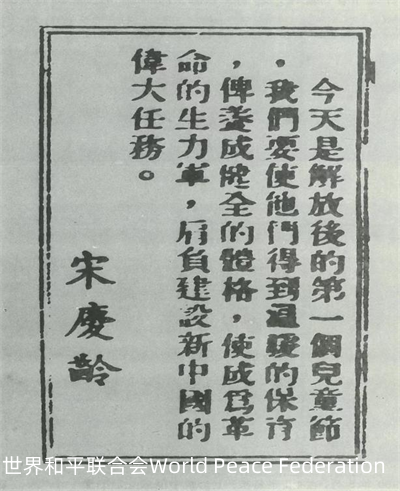 今天是解放後的第一個兒童節
。我們要使他們得到温暖的保育
，俾養成健全的體格，使成爲革
命的生力軍，肩負建設新中國的
偉大任務。
宋慶齡
世界和平联合会World Peace Federation